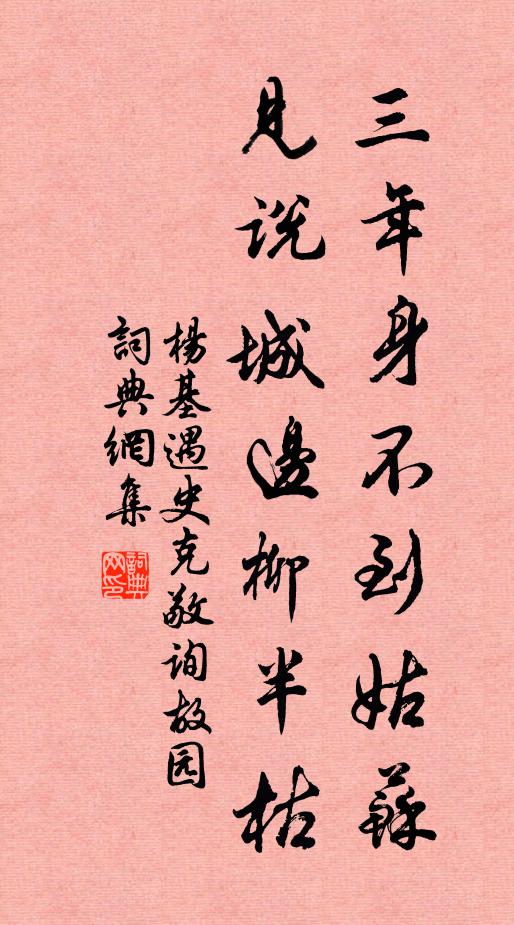 三年身不到姑蘇
見説城邊柳半枯
楊基遇史克敬询故园
詞典網集
詞典網印